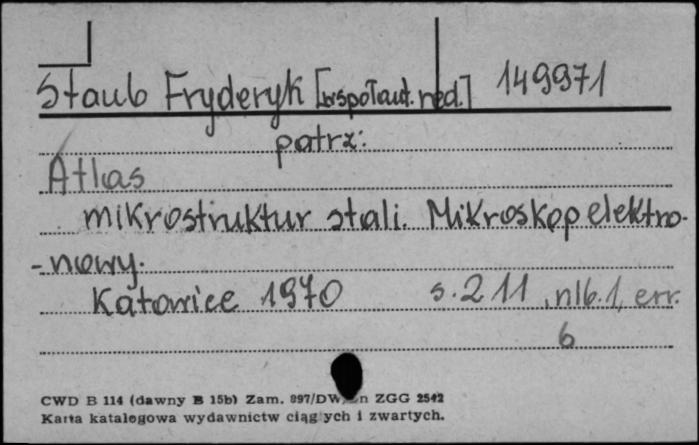 Staub Fryderyk [współaut. red.] 149971
patrz:
Atlas
mikrostruktur stali. Mikroskop elektro-
-nowy.
Katowice 1970 s. 211, nlb. 1, err.
6
CWD B 114 (dawny B 15b) Zam. 897/DW n ZGG 2542
Karta katalogowa wydawnictw ciąg ych i zwartych.